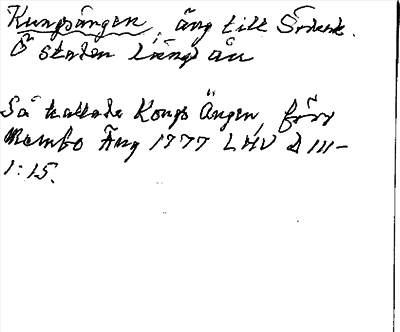 Kungsängen, äng till Söderk.
Ö staden längs ån
Så kallade Kongs Ängen, förr
Mambo Äng 1777 LHV d III-
1:15.